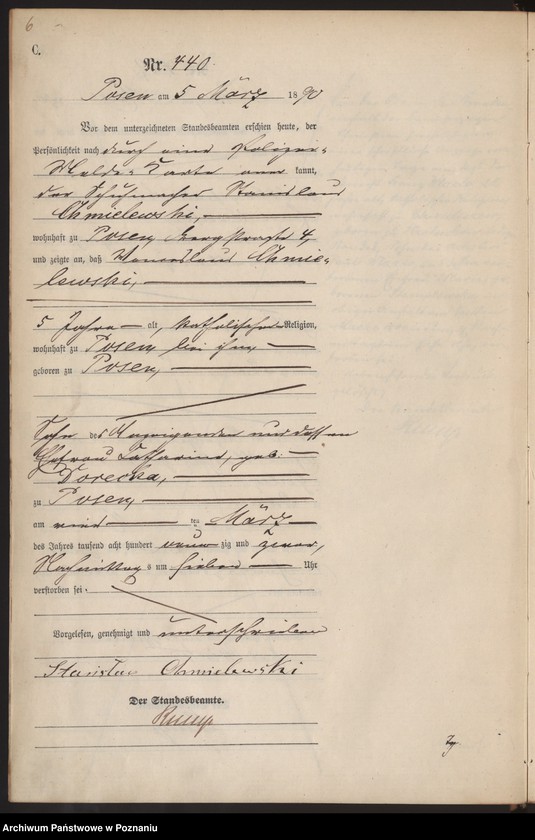 6
C.
Nr. 440.
Posen am 5 März 1890
Vor dem unterzeichneten Standesbeamten erschien heute, der
Persönlichkeit nach durch eine Polizei-
Melde-Karte aner kannt,
der Schuhmacher Stanislaus
Chmielewski,
wohnhaft zu Posen Bergstraße 4,
und zeigte an, daß Wenceslaus Chmie-
lewski,
5 Jahre alt, katholischer Religion,
wohnhaft zu Posen bei ihm,
geboren zu Posen,
Sohn des Anzeigenden und dessen
Ehefrau Catharina, geb.
Dorecka,
zu Posen,
am vier ten März
des Jahres tausend acht hundert neun zig und zwar,
Nachmittag s um sieben Uhr
verstorben sei.
Vorgelesen, genehmigt und unterschrieben
Stanisław Chmielewski
Der Standesbeamte.
Archiwum Państwowe w Poznaniu